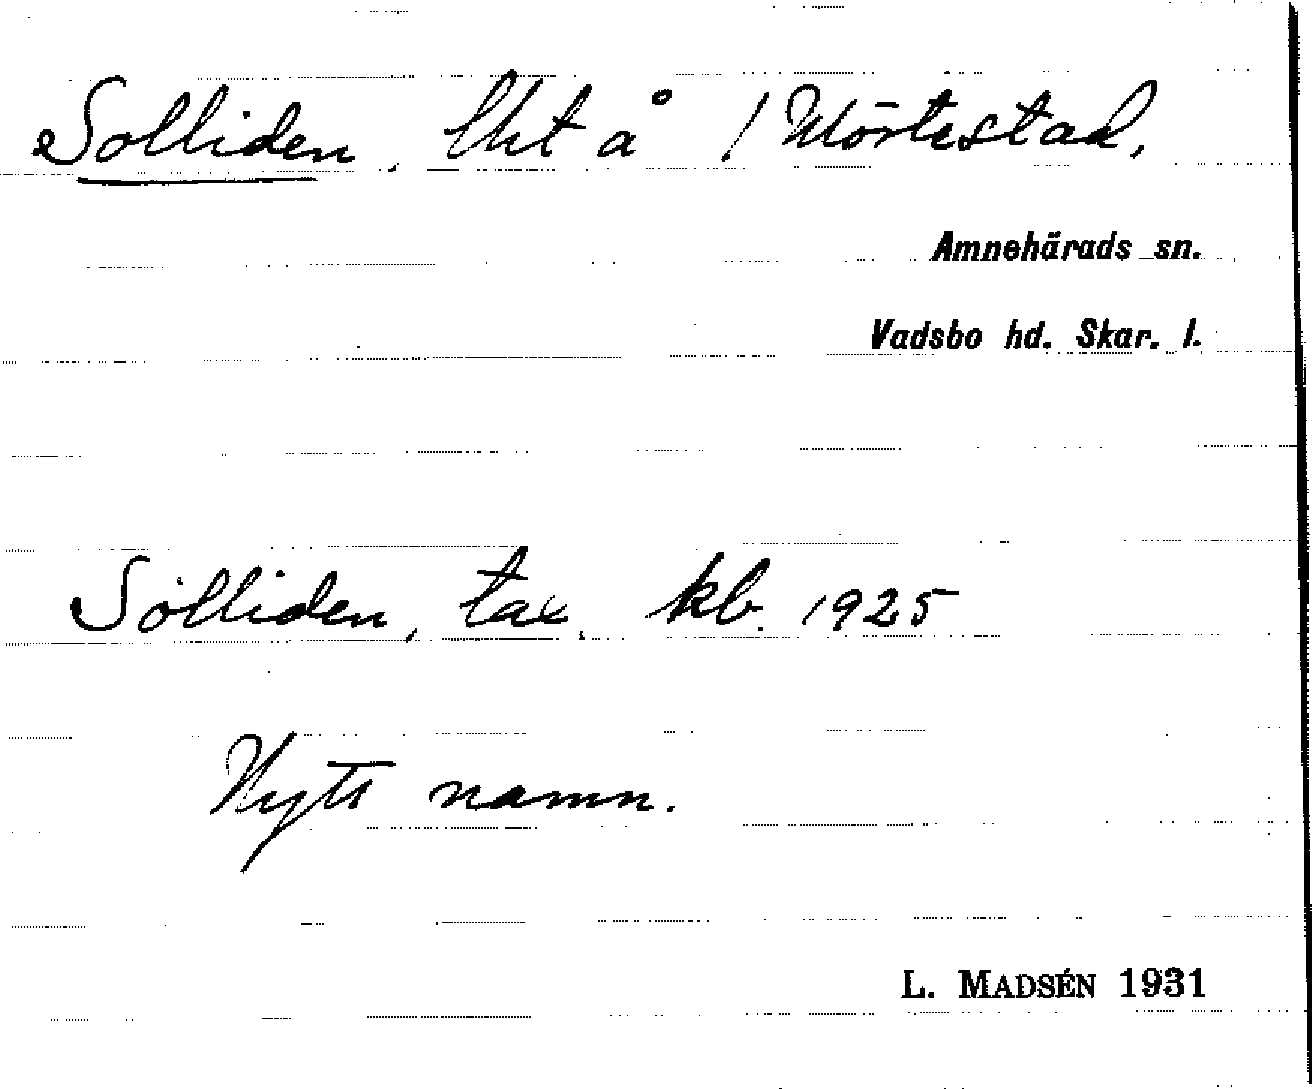 Solliden, lht å 1 Mörtestad,
Amnehärads sn.
Vadsbo hd. Skar. l.
Solliden, tax. kb. 1925
Nytt namn.
L. MADSÉN 1931